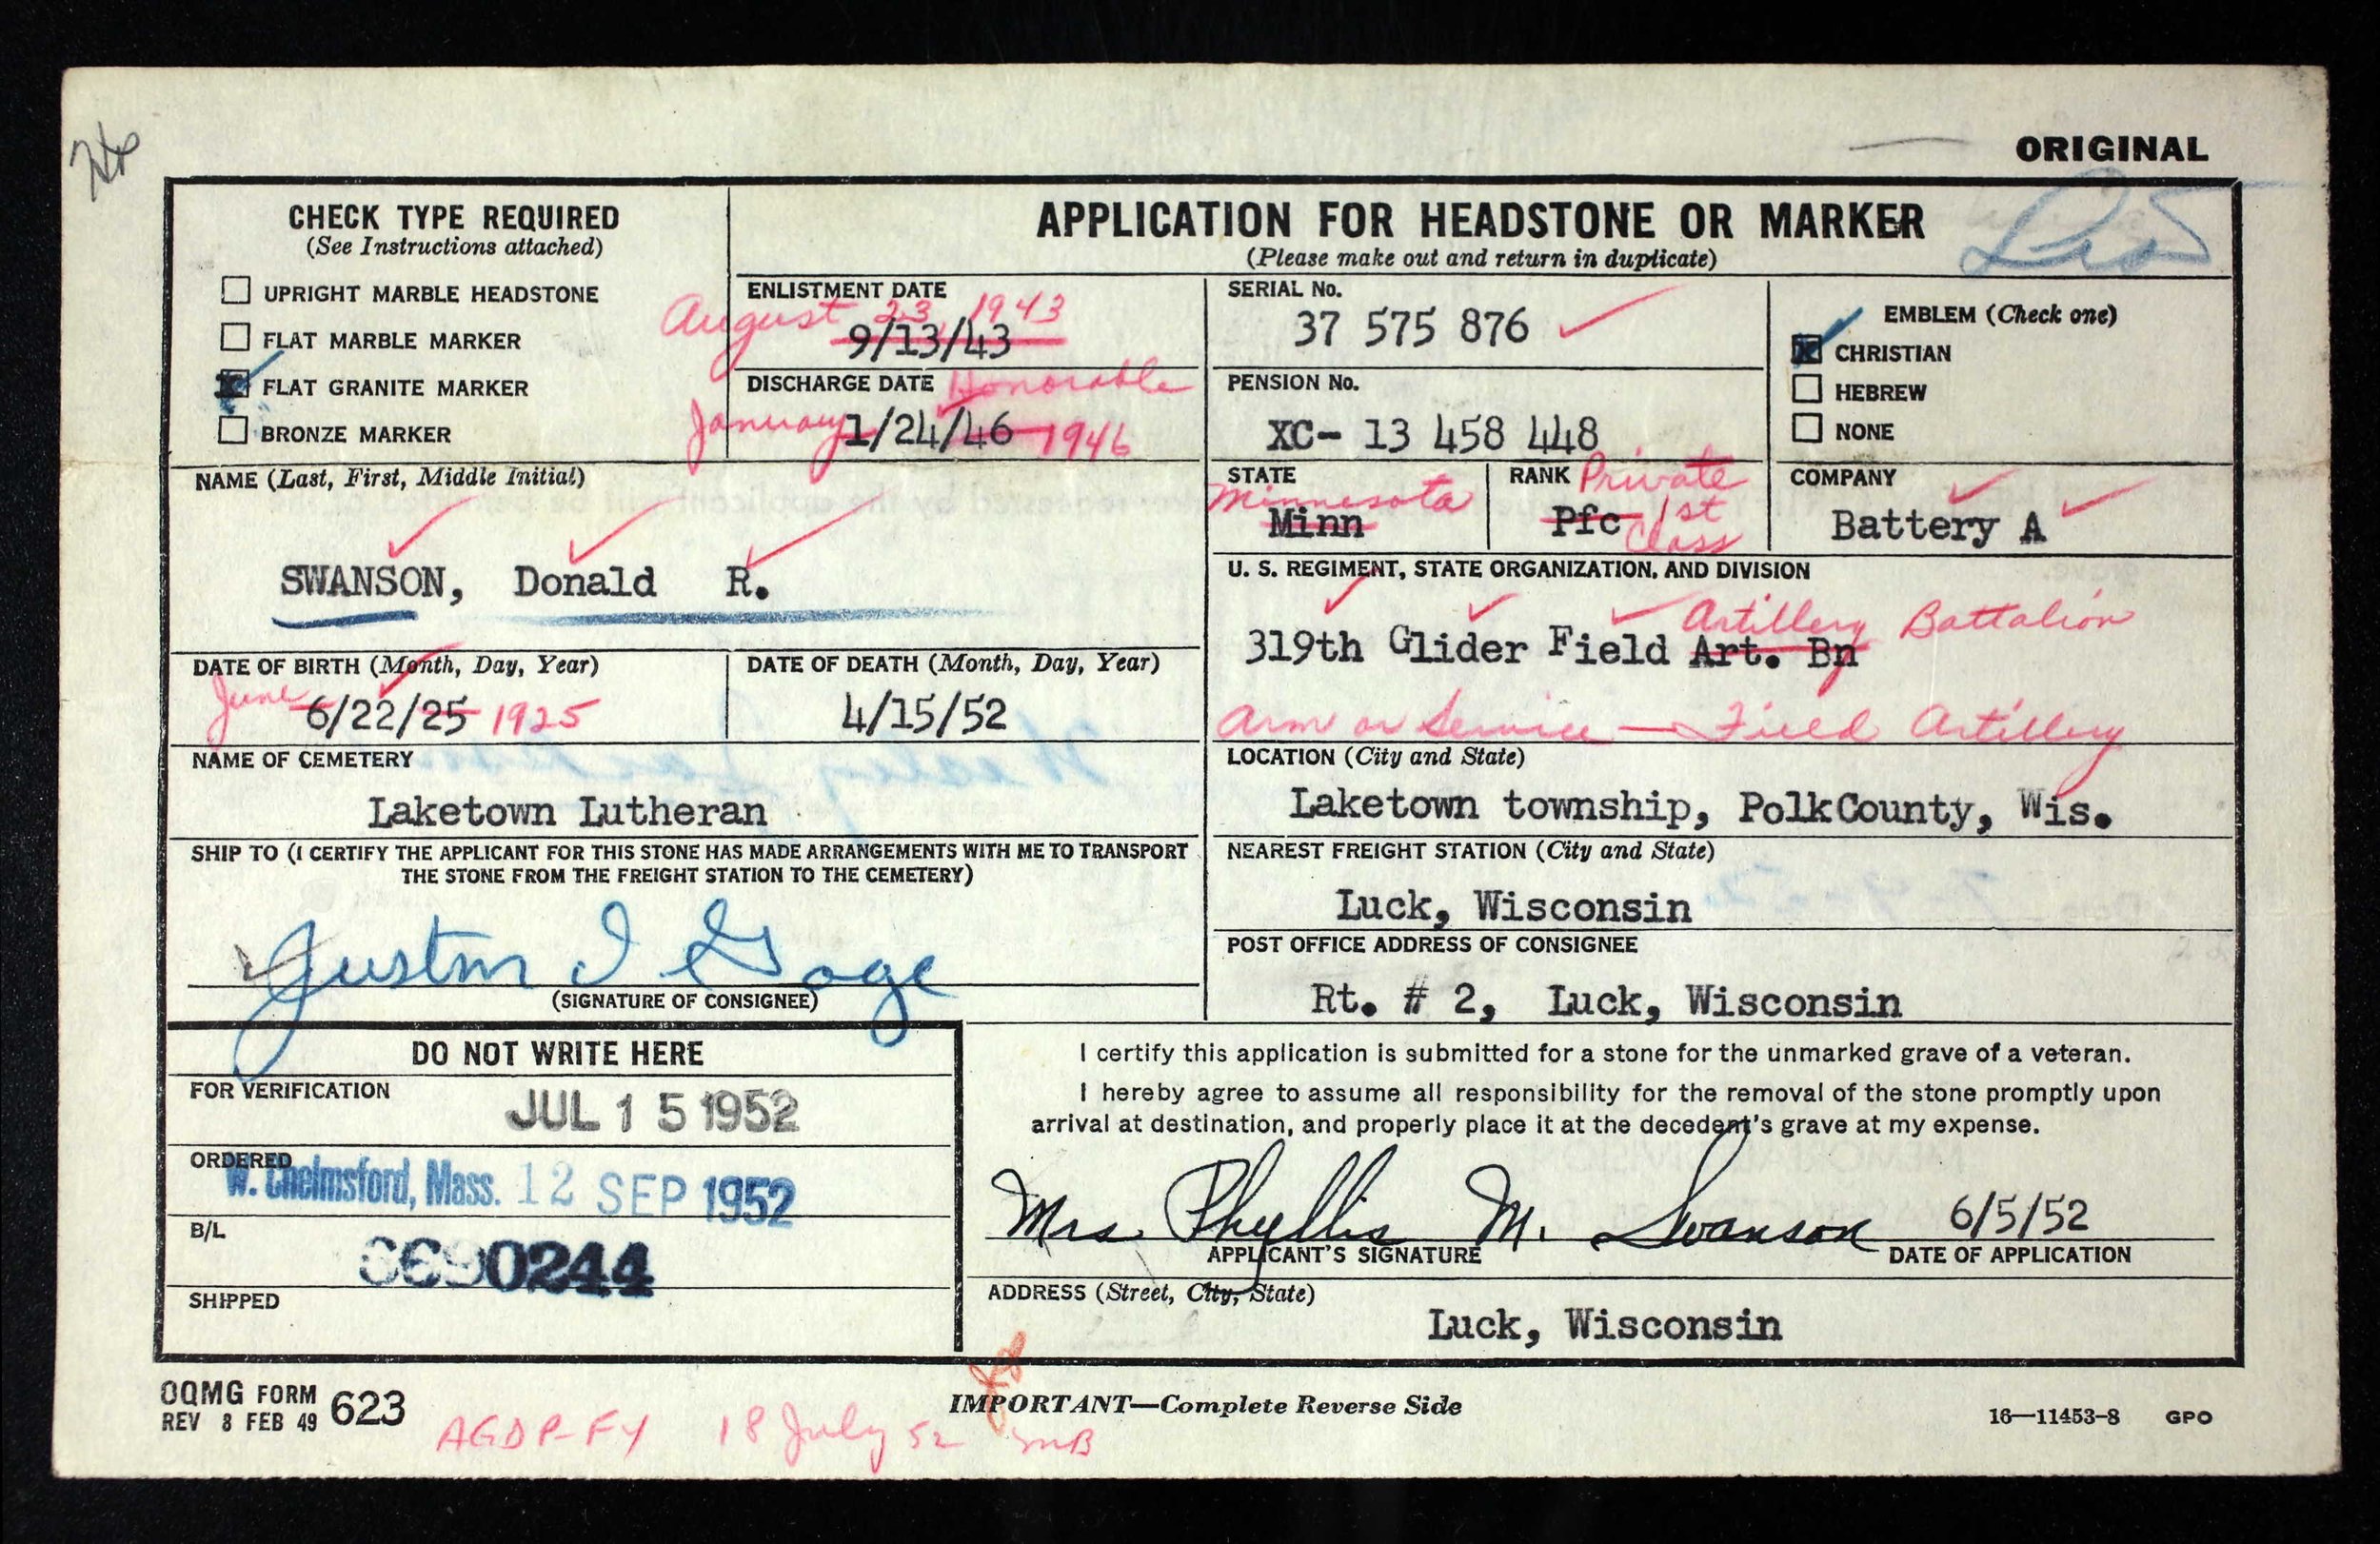 24
ORIGINAL
CHECK TYPE REQUIRED
(See Instructions attached)
UPRIGHT MARBLE HEADSTONE
FLAT MARBLE MARKER
X FLAT GRANITE MARKER
BRONZE MARKER
APPLICATION FOR HEADSTONE OR MARKER
(Please make out and return in duplicate)
ENLISTMENT DATE
August 23, 1943
9/13/43
DISCHARGE DATE Honorable
January 1/24/46 1946
SERIAL No.
37 575 876
PENSION No.
XC- 13 458 448
EMBLEM (Check one)
X CHRISTIAN
HEBREW
NONE
NAME (Last, First, Middle Initial)
SWANSON, Donald R.
STATE
Minnesota
Minn
RANK Private
Pfc 1st
Class
COMPANY
Battery A
U. S. REGIMENT, STATE ORGANIZATION, AND DIVISION
Artillery Battalion
319th Glider Field Art. Bn
Arm or Service — Field Artillery
DATE OF BIRTH (Month, Day, Year)
June 6/22/25 1925
DATE OF DEATH (Month, Day, Year)
4/15/52
NAME OF CEMETERY
Laketown Lutheran
LOCATION (City and State)
Laketown township, Polk County, Wis.
SHIP TO (I CERTIFY THE APPLICANT FOR THIS STONE HAS MADE ARRANGEMENTS WITH ME TO TRANSPORT
THE STONE FROM THE FREIGHT STATION TO THE CEMETERY)
Justin I Goge
(SIGNATURE OF CONSIGNEE)
NEAREST FREIGHT STATION (City and State)
Luck, Wisconsin
POST OFFICE ADDRESS OF CONSIGNEE
Rt. # 2, Luck, Wisconsin
DO NOT WRITE HERE
FOR VERIFICATION
JUL 15 1952
ORDERED
W. Chelmsford, Mass. 12 SEP 1952
B/L
6690244
SHIPPED
I certify this application is submitted for a stone for the unmarked grave of a veteran.
I hereby agree to assume all responsibility for the removal of the stone promptly upon
arrival at destination, and properly place it at the decedent's grave at my expense.
Mrs Phyllis M. Swanson 6/5/52
APPLICANT'S SIGNATURE DATE OF APPLICATION
ADDRESS (Street, City, State)
Luck, Wisconsin
OQMG FORM 623
REV 8 FEB 49
IMPORTANT—Complete Reverse Side
16—11453-8 GPO
AGDP-FY 18 July 52 MB